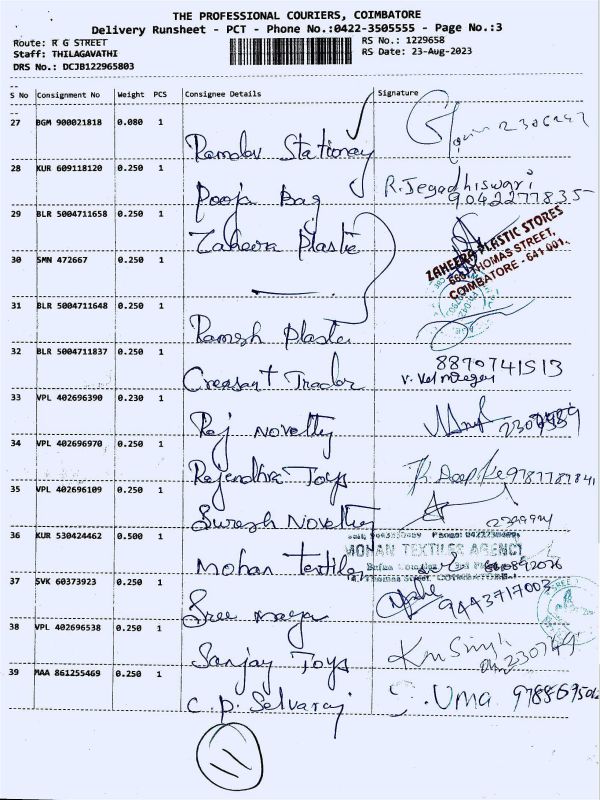 THE PROFESSIONAL COURIERS, COIMBATORE
Delivery Runsheet - PCT - Phone No.:0422-3505555 - Page No.:3
Route: R G STREET
RS No.: 1229658
Staff: THILAGAVATHI
RS Date: 23-Aug-2023
DRS No.: DCJB122965803
S No Consignment No Weight PCS Consignee Details Signature
27 BGM 900021818 0.080 1
Ramdev Stationay
28 KUR 609118120 0.250 1
R. Jegadhiswari
Pooja Bag 9042277835
29 BLR 5004711658 0.250 1
Zaheera Plastic
ZAHEERA PLASTIC STORES
THOMAS STREET,
COIMBATORE - 641 001.
30 SMN 472667 0.250 1
31 BLR 5004711648 0.250 1
Ramesh Plastic
32 BLR 5004711837 0.250 1
8870741513
Creasant Trader
33 VPL 402696390 0.230 1
Raj Novelty
34 VPL 402696970 0.250 1
Rajendhra Toys
35 VPL 402696109 0.250 1
Suresh Novelty
36 KUR 530424462 0.500 1
MOHAN TEXTILES AGENCY
Mohan Textiles
37 SVK 60373923 0.250 1
9443717003
Sree maya
38 VPL 402696538 0.250 1
Sanjay Toys
39 MAA 861255469 0.250 1
Uma
C. P. Selvaraj